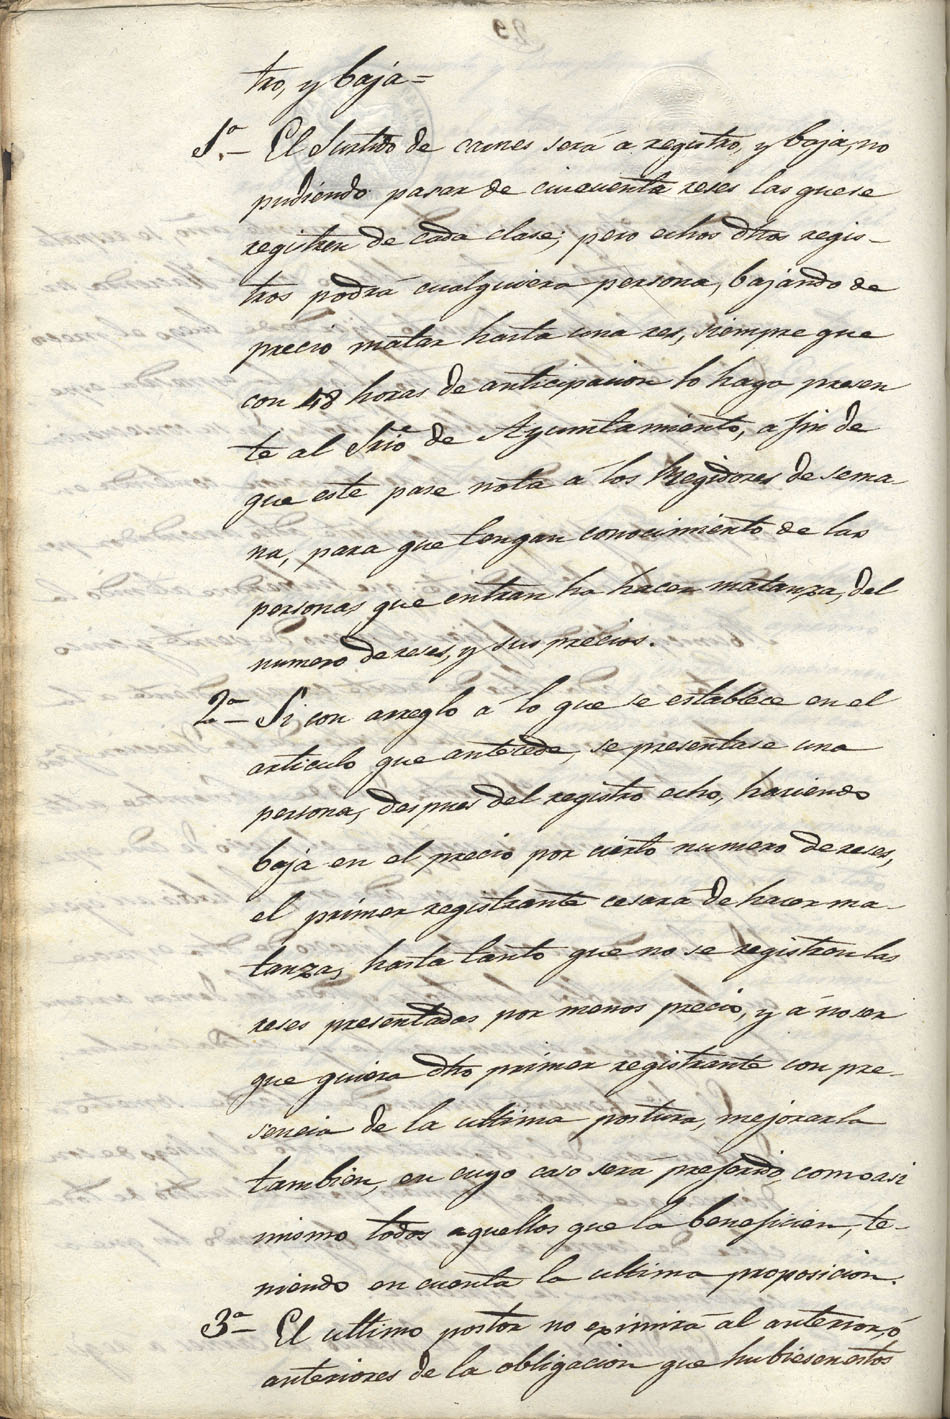 29
tro, y baja=
1.ª - El Surtido de carnes será a registro, y baja, no
pudiendo pasar de cincuenta reses las que se
registren de cada clase; pero echos dhos regis-
tros podrá cualquiera persona, bajando de
precio matar hasta una res, siempre que
con 48 horas de anticipacion lo haga presen
te al Srio de Ayuntamiento, a fin de
que este pase nota á los Regidores de sema
na, para que tengan conocimiento de las
personas que entran ha hacer matanza, del
numero de reses, y sus precios.
2ª - Si con arreglo á lo que se establece en el
articulo que antecede, se presentase una
persona, despues del registro echo, haciendo
baja en el precio por cierto numero de reses,
el primer registrante cesará de hacer ma-
tanza, hasta tanto que no se registren las
reses presentadas por menos precio, y á no ser
que quiera dho primer registrante con pre-
sencia de la ultima postura, mejorarla
tambien, en cuyo caso será preferido, como asi
mismo todos aquellos que la beneficien, te-
niendo en cuenta la ultima proposicion.
3ª - El ultimo postor no eximirá al anterior, ó
anteriores de la obligacion que hubiesen estos